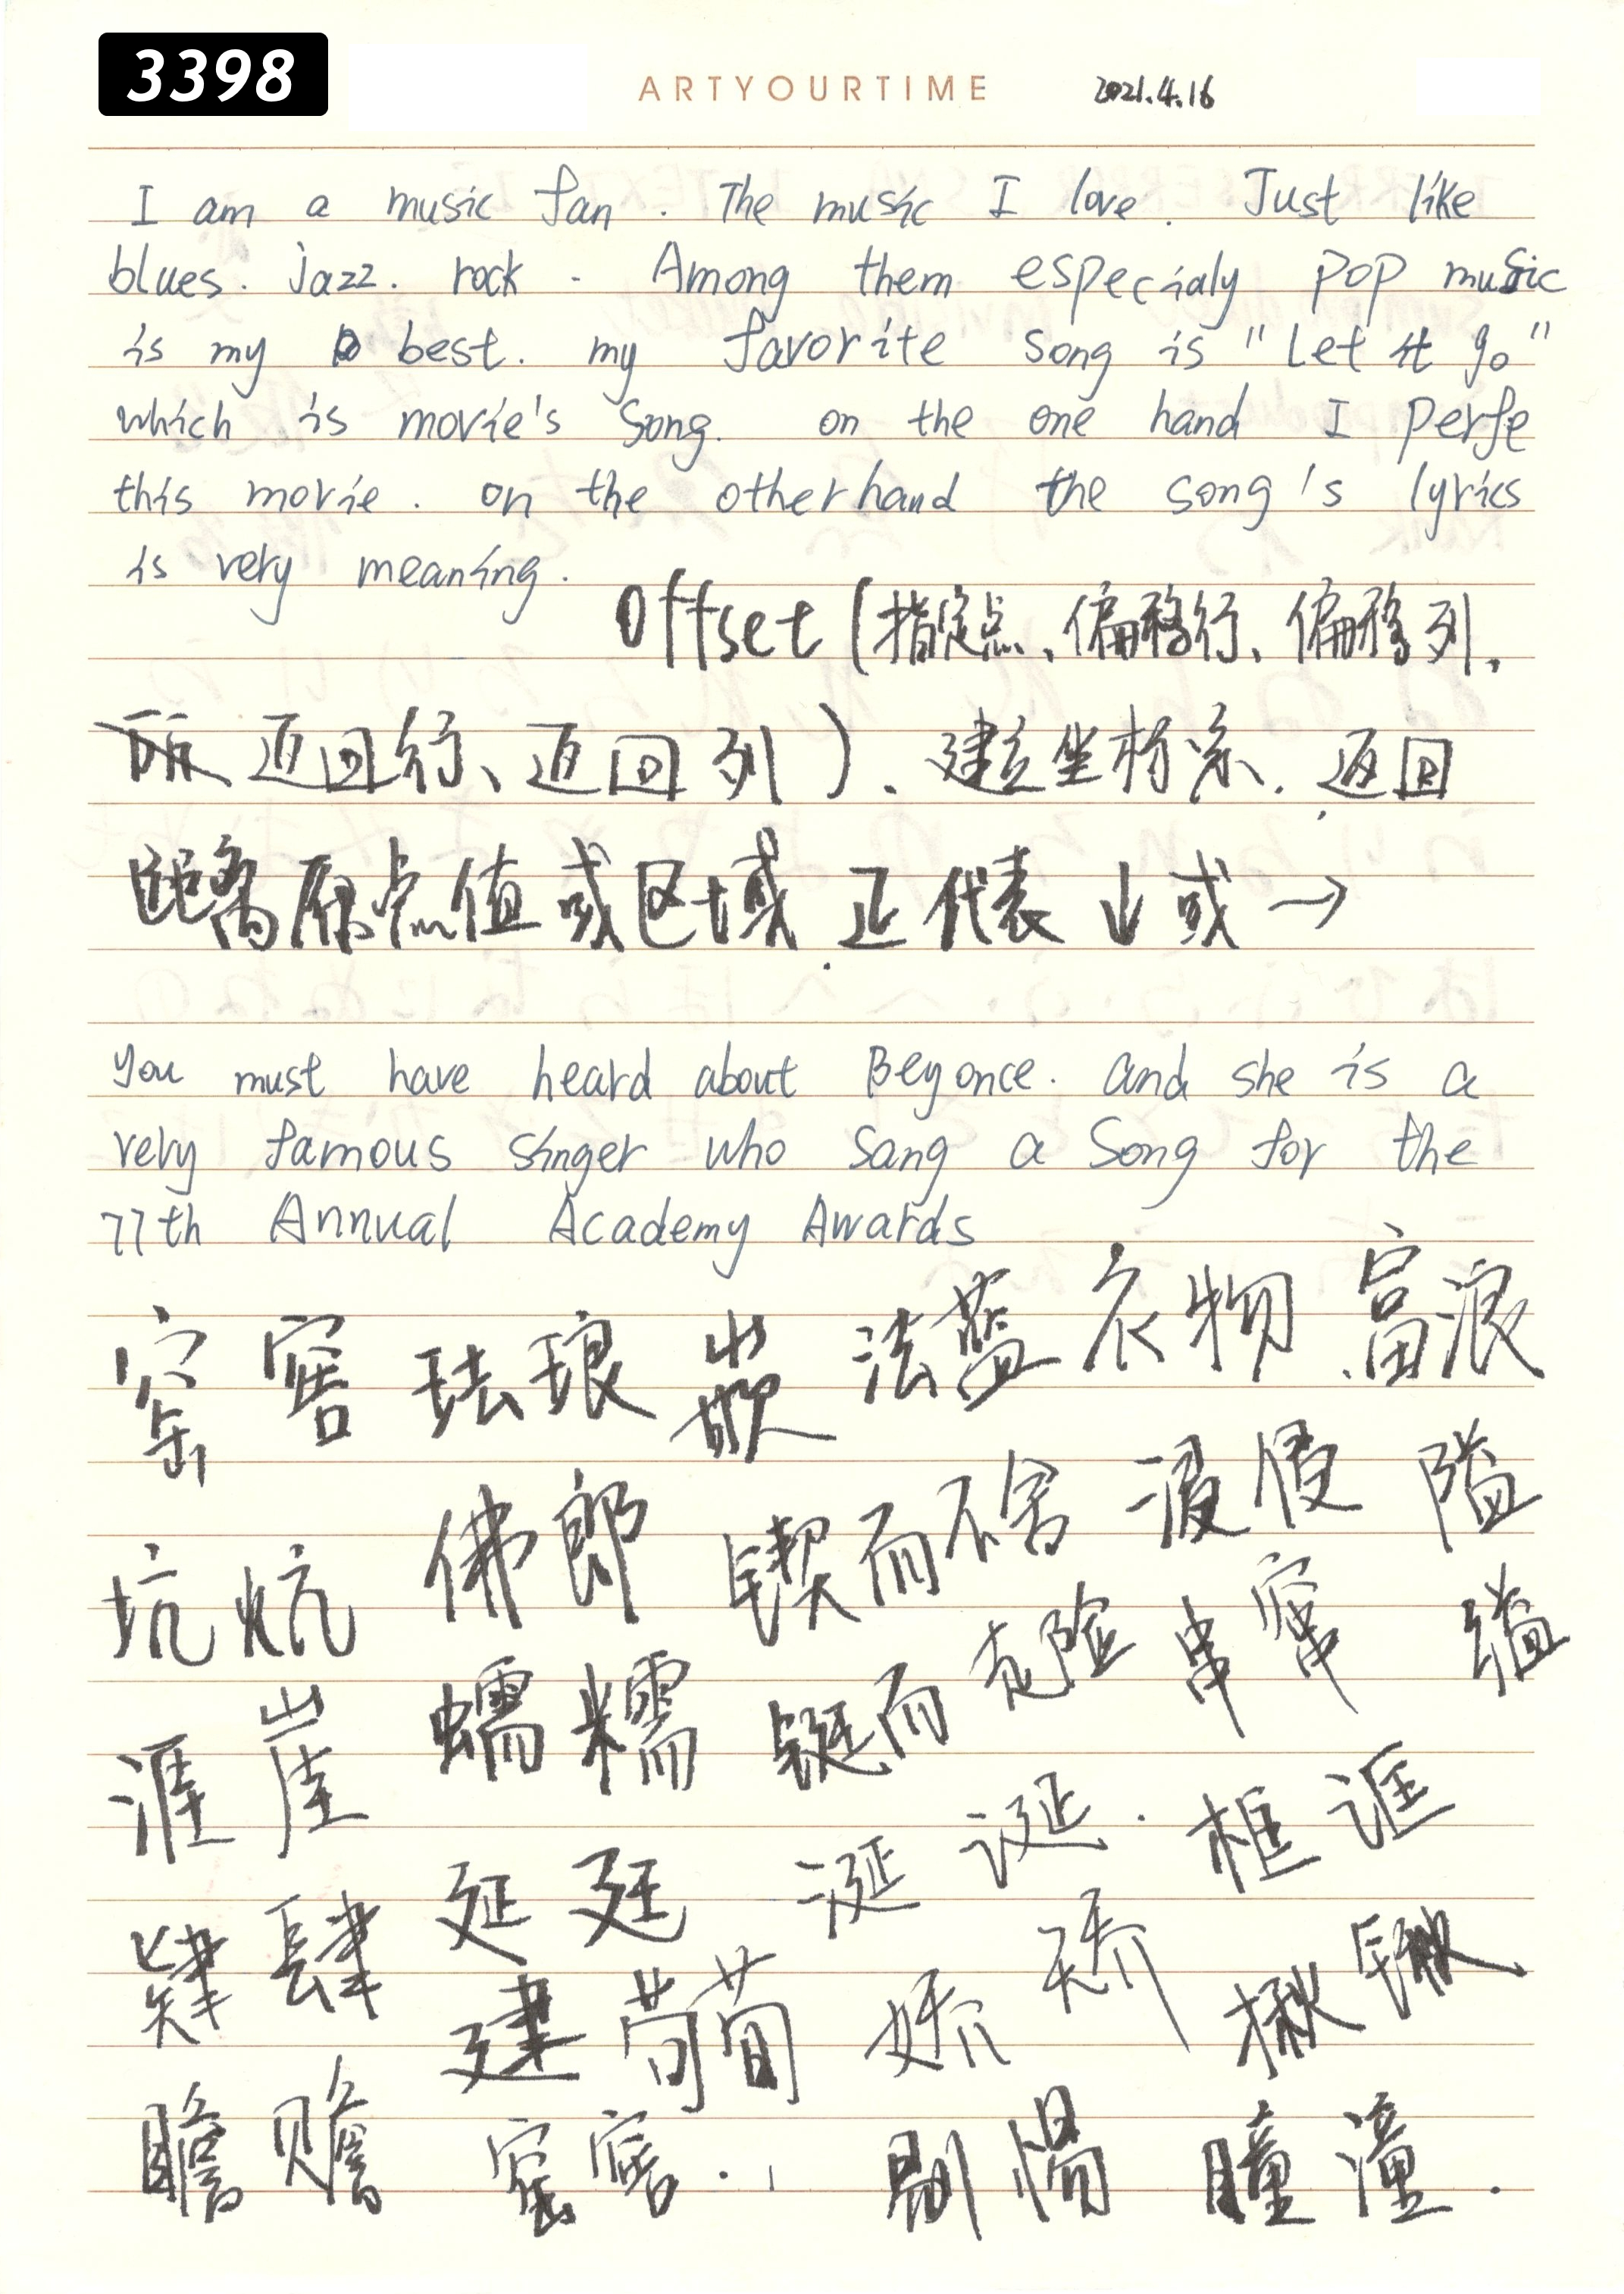 3398
ARTYOURTIME 2021.4.16
I am a music fan. The music I love. Just like
blues. jazz. rock. Among them especialy pop music
is my best. my favorite song is "Let it go"
which is movie's song. on the one hand I perfe
this movie. on the otherhand the song's lyrics
is very meaning.
offset (指定点、偏移行、偏移列、
返回行、返回列)、建立坐标系. 返回
距离原点值或区域. 正代表↓或→
you must have heard about Beyonce. and she is a
very famous singer who sang a song for the
77th Annual Academy Awards
窑 窖 珐琅 嵌 法蓝 衣物 富浪
坑 炕 佛郎 锲而不害 隘
涯 崖 蠕 糯 铤而克险 串 窜 缢
肄 肆 延 廷 涎 诞. 框 诓
建 苟 娇 矫 揪 锹
瞻 赡 窖. 剔 惕 瞳 潼.